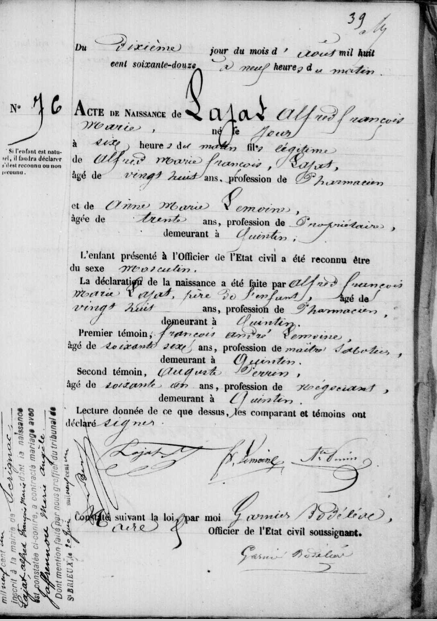 39
Du dixième jour du mois d' août mil huit
cent soixante-douze à neuf heures du matin.
N° 76
ACTE DE NAISSANCE de Lajat Alfred françois
Marie, né ce jour
à six heures du matin fils légitime
de Alfred Marie françois, Lajat,
âgé de vingt huit ans, profession de Pharmacien
et de Anne Marie Lemoine,
âgée de trente ans, profession de Propriétaire,
demeurant à Quintin,
Si l'enfant est natu-
rel, il faudra déclarer
s'il est reconnu ou non
reconnu.
L'enfant présenté à l'Officier de l'Etat civil a été reconnu être
du sexe masculin.
La déclaration de la naissance a été faite par Alfred françois
Marie Lajat, père de l'enfant, âgé de
vingt huit ans, profession de Pharmacien,
demeurant à Quintin.
Premier témoin, françois andré Lemoine,
âgé de soixante six ans, profession de maître
demeurant à Quintin.
Second témoin, Auguste Perrin,
âgé de soixante un ans, profession de négociant,
demeurant à Quintin.
Lecture donnée de ce que dessus, les comparant et témoins ont
déclaré signer
Lajat fr. Lemoine
Constaté suivant la loi, par moi Garnier Bodéléac,
Maire Officier de l'Etat civil soussignant.
Garnier Bodéléac
inscrit à la mairie de
Lajat alfred François Marie dont la naissance
est constatée ci-contre, a contracté mariage avec
Marie
Dont mention faite par nous greffier du tribunal de
St BRIEUC